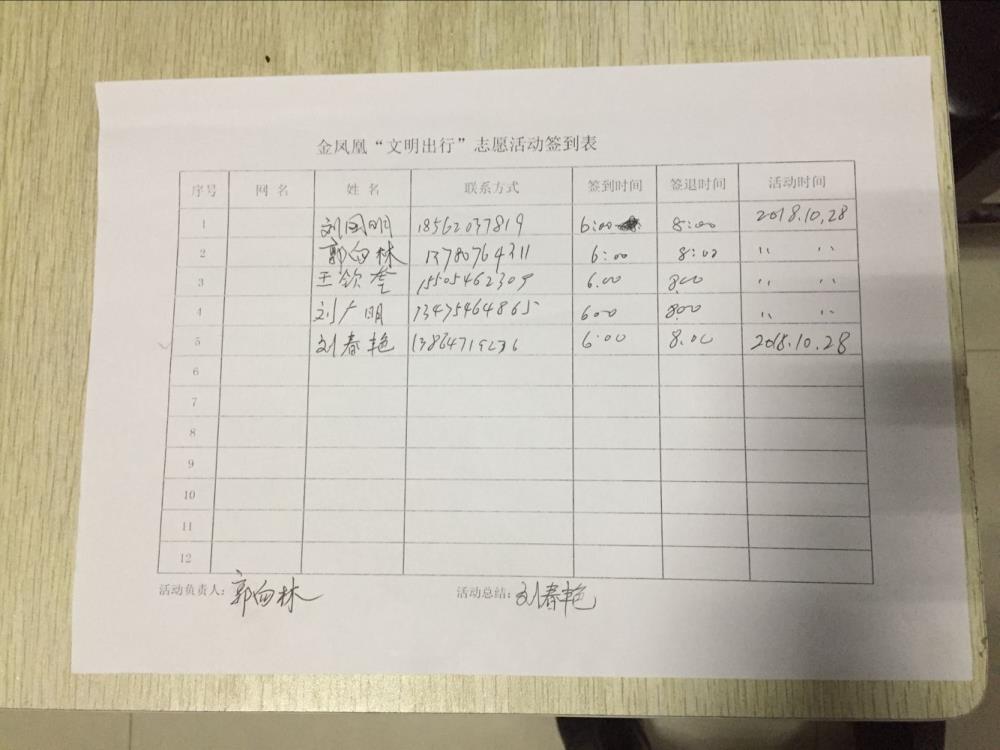 金凤凰“文明出行”志愿活动签到表
序号 网 名 姓 名 联系方式 签到时间 签退时间 活动时间
1 刘国明 18562037819 6:00 8:00 2018.10.28
2 郭向林 13780764311 6:00 8:00 〃 〃
3 王欽奎 15505462309 6.00 8.00 〃 〃
4 刘广明 13475464865 600 800 〃 〃
5 刘春艳 13864719236 6:00 8.00 2018.10.28
6
7
8
9
10
11
12
活动负责人：郭向林 活动总结：刘春艳